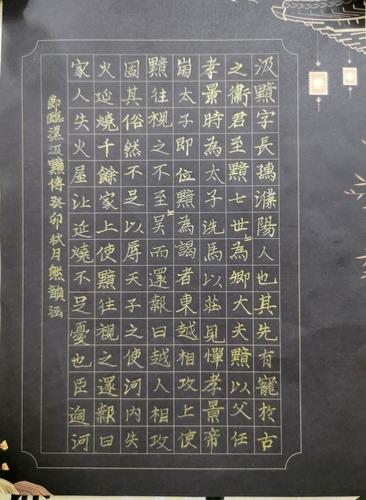 汲黯字長孺濮陽人也其先有寵於古
之衛君至黯七世〻為卿大夫黯以父任
孝景時為太子洗馬以莊見憚孝景帝
崩太子即位黯為謁者東越相攻上使
黯往視之不至吳而還報曰越人相攻
固其俗然不足以辱天子之使河內失
火延燒千餘家上使黯往視之還報曰
家人失火屋比延燒不足憂也臣過河
節臨漢汲黯傳癸卯秋月熊韻涵